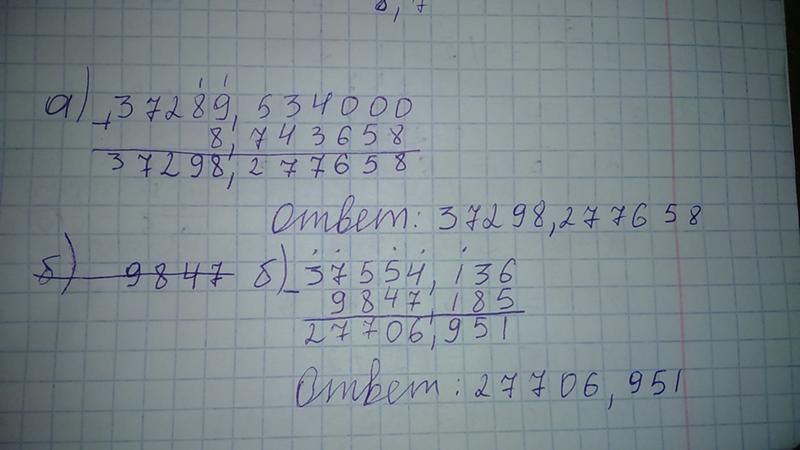 8,7
а) + 37289,534000
8,743658
37298,277658
Ответ: 37298,277658
б) 9847 б) - 37554,136
9847,185
27706,951
Ответ: 27706,951